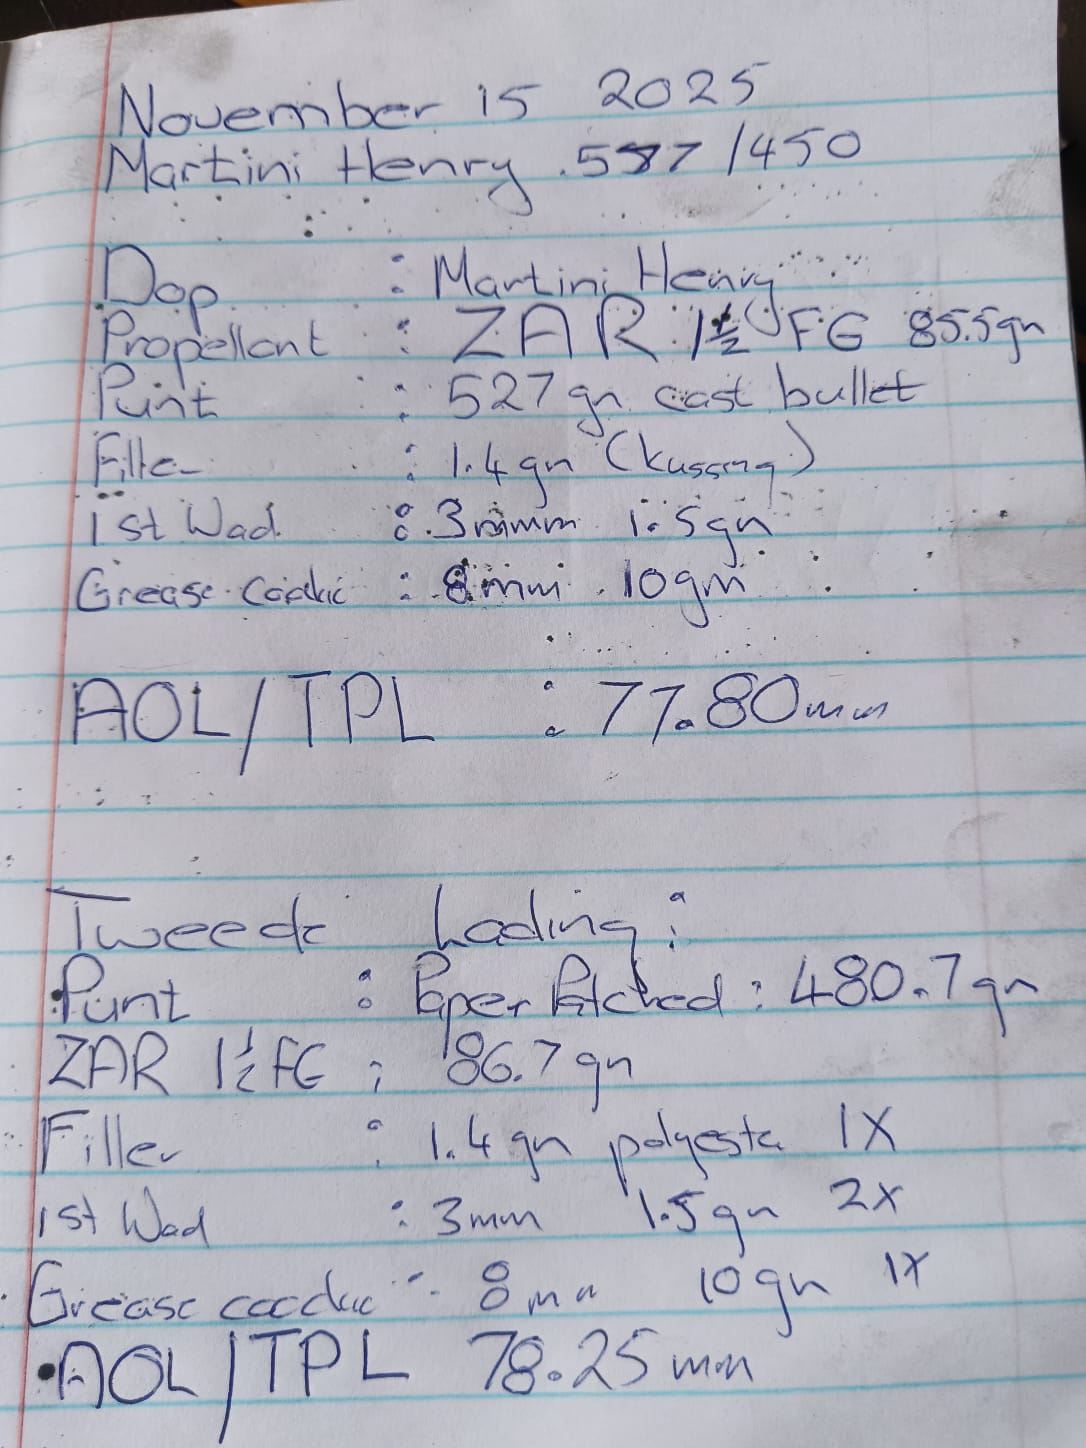 November 15 2025
Martini Henry .577/450
Dop : Martini Henry
Propellant : ZAR 1½ FG 85.5gn
Punt : 527gn cast bullet
Filler : 1.4gn (kussing)
1st Wad : 3mm 1.5gn
Grease Cookie : 8mm 10gm
AOL/TPL : 77.80mm
Tweede Lading :
Punt : Paper Patched : 480.7gn
ZAR 1½ FG ; 86.7gn
Filler : 1.4gn polyesta 1X
1st Wad : 3mm 1.5gn 2X
Grease coodue : 8mm 10gn 1X
AOL/TPL 78.25mm